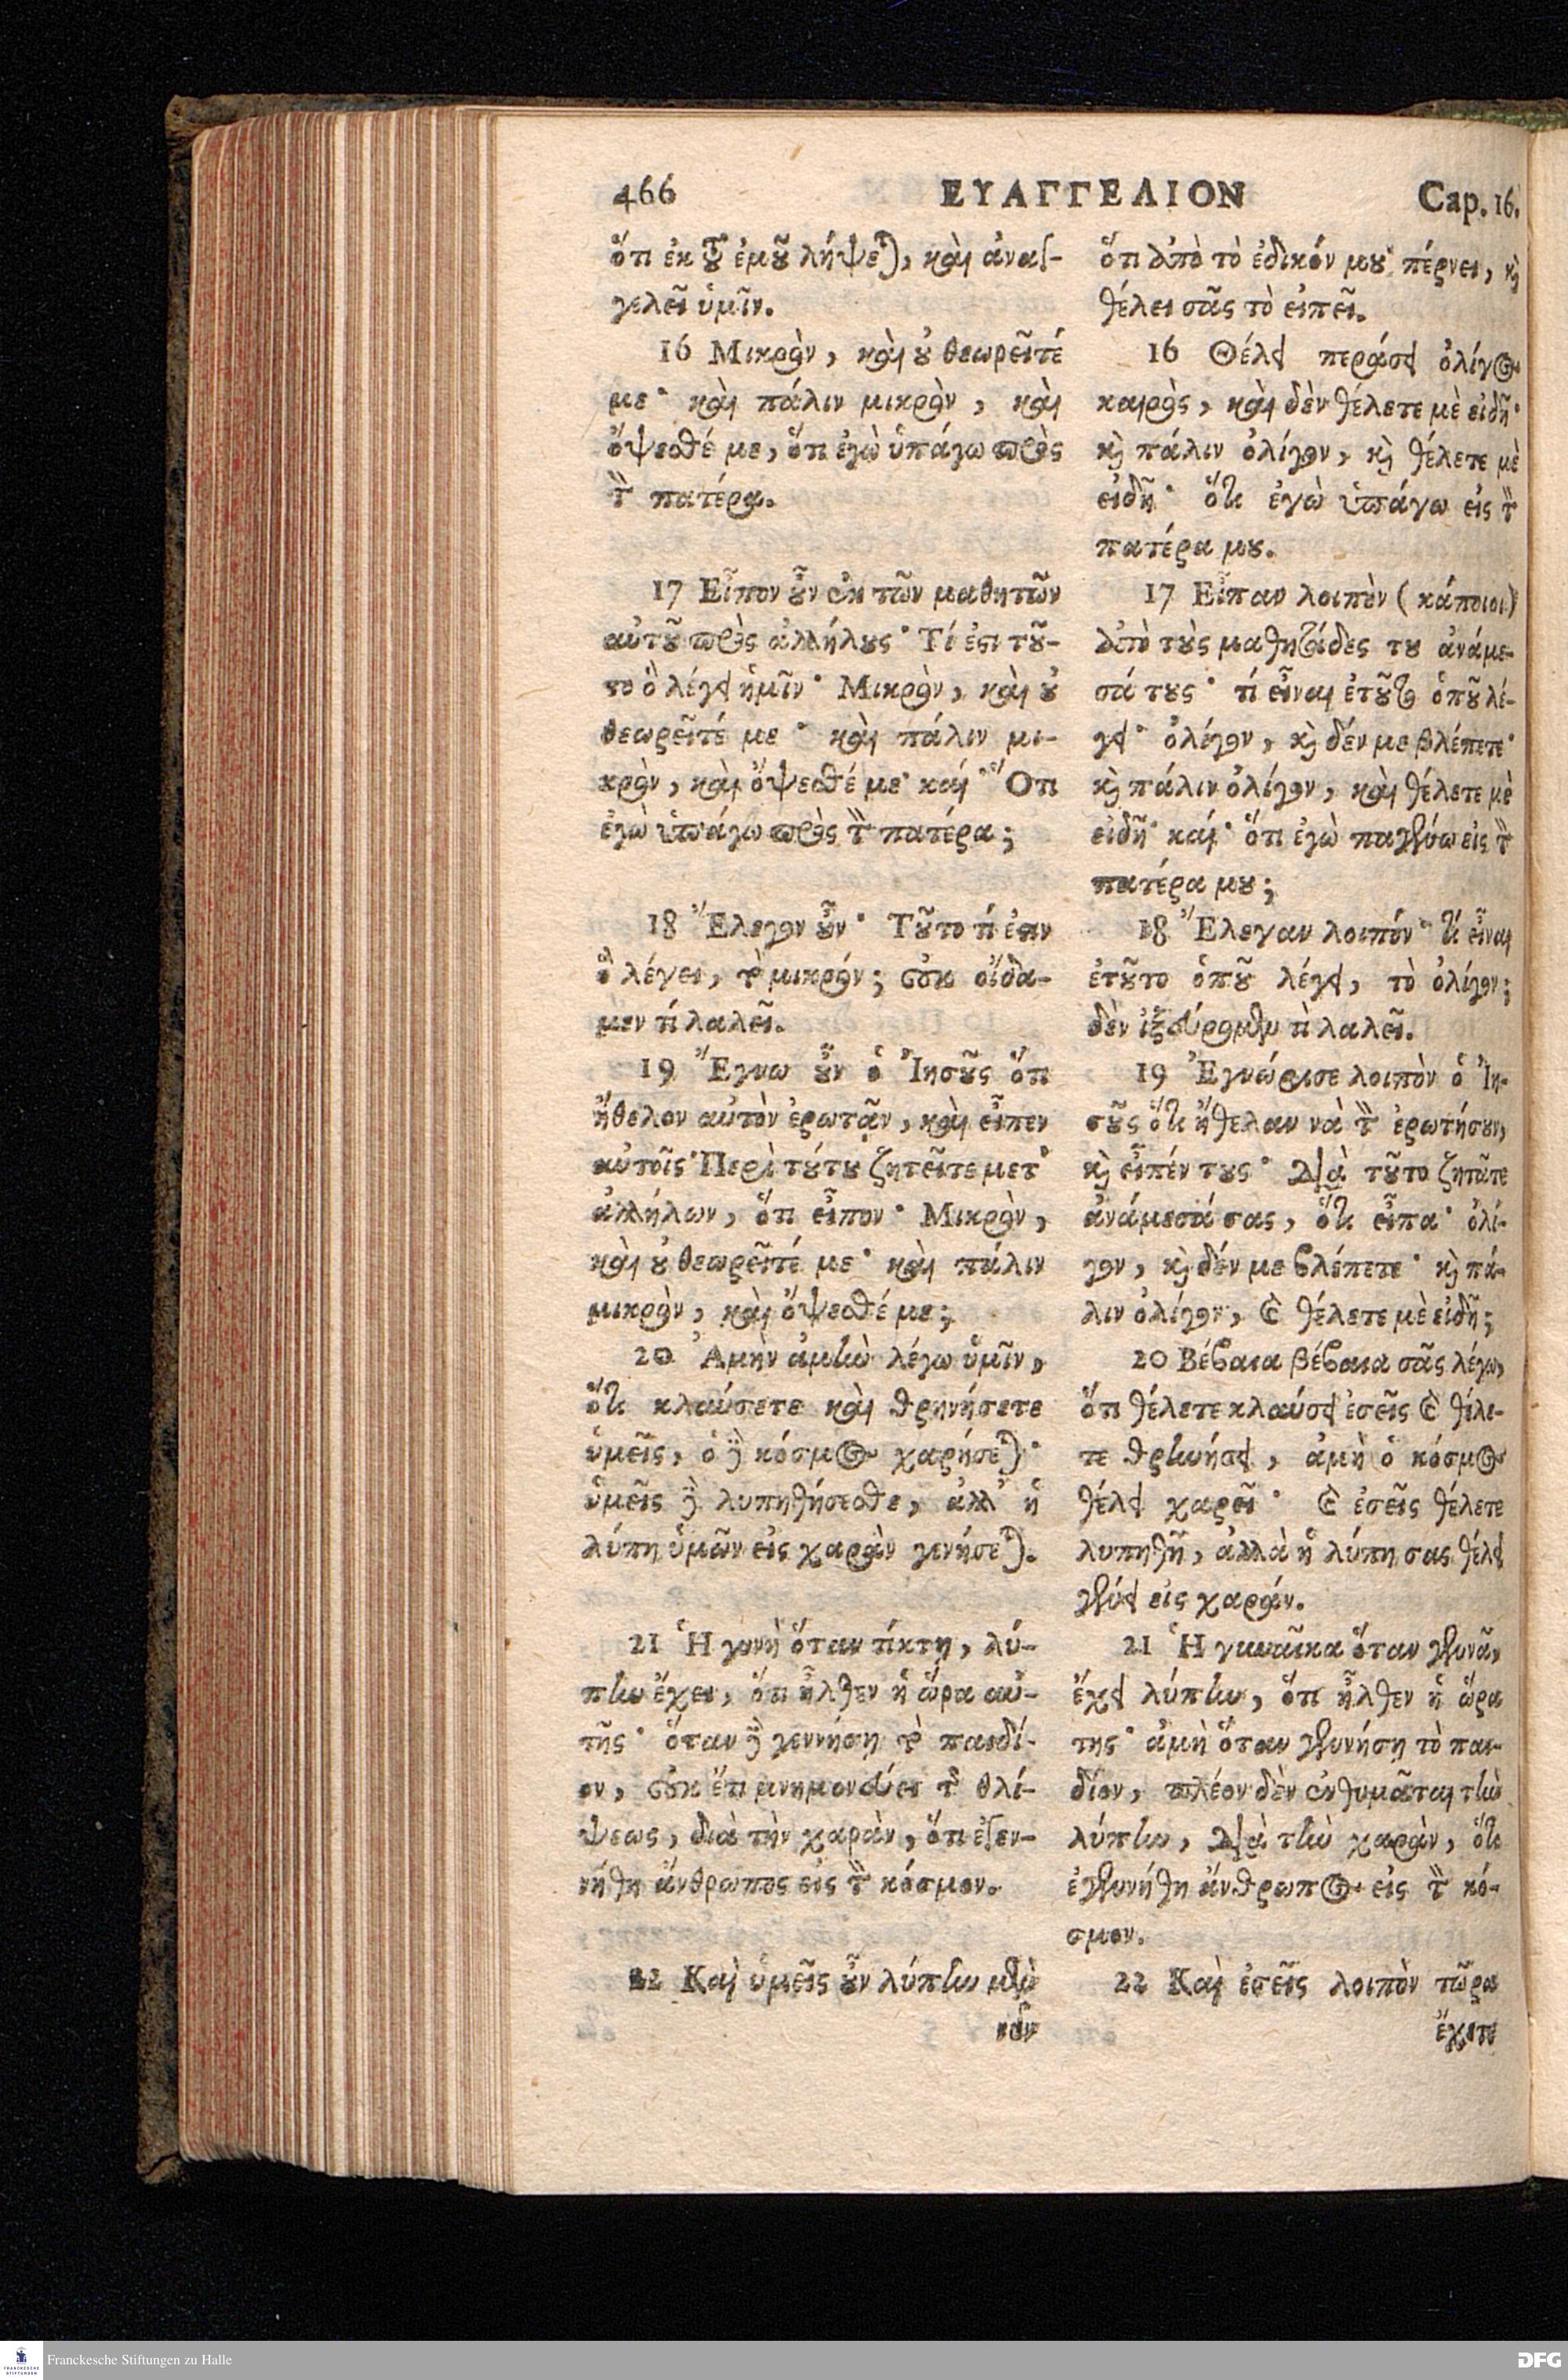 466 ΕΥΑΓΓΕΛΙΟΝ Cap. 16.
ὅτι ἐκ τοῦ ἐμοῦ λήψεται, καὶ ἀναγ-
γελεῖ ὑμῖν.
16 Μικρὸν, καὶ οὐ θεωρεῖτέ
με· καὶ πάλιν μικρὸν, καὶ
ὄψεσθέ με, ὅτι ἐγὼ ὑπάγω πρὸς
τὸν πατέρα.
17 Εἶπον οὖν ἐκ τῶν μαθητῶν
αὐτοῦ πρὸς ἀλλήλους· Τί ἐστι τοῦ-
το ὃ λέγει ἡμῖν· Μικρὸν, καὶ οὐ
θεωρεῖτέ με· καὶ πάλιν μι-
κρὸν, καὶ ὄψεσθέ με· καί· Ὅτι
ἐγὼ ὑπάγω πρὸς τὸν πατέρα;
18 Ἔλεγον οὖν· Τοῦτο τί ἐστιν
ὃ λέγει, τὸ μικρόν; οὐκ οἴδα-
μεν τί λαλεῖ.
19 Ἔγνω οὖν ὁ Ἰησοῦς ὅτι
ἤθελον αὐτὸν ἐρωτᾷν, καὶ εἶπεν
αὐτοῖς· Περὶ τούτου ζητεῖτε μετ'
ἀλλήλων, ὅτι εἶπον· Μικρὸν,
καὶ οὐ θεωρεῖτέ με· καὶ πάλιν
μικρὸν, καὶ ὄψεσθέ με;
20 Ἀμὴν ἀμὴν λέγω ὑμῖν,
ὅτι κλαύσετε καὶ θρηνήσετε
ὑμεῖς, ὁ δὲ κόσμος χαρήσεται·
ὑμεῖς δὲ λυπηθήσεσθε, ἀλλ' ἡ
λύπη ὑμῶν εἰς χαρὰν γενήσεται.
21 Ἡ γυνὴ ὅταν τίκτῃ, λύ-
πην ἔχει, ὅτι ἦλθεν ἡ ὥρα αὐ-
τῆς· ὅταν δὲ γεννήσῃ τὸ παιδί-
ον, οὐκ ἔτι μνημονεύει τῆς θλί-
ψεως, διὰ τὴν χαρὰν, ὅτι ἐγεν-
νήθη ἄνθρωπος εἰς τὸν κόσμον.
22 Καὶ ὑμεῖς οὖν λύπην μὲν
νῦν
ὅτι ἀπὸ τὸ ἐδικόν μου πέρνει, καὶ
θέλει σᾶς τὸ εἰπεῖ.
16 Θέλει περάσει ὀλίγος
καιρὸς, καὶ δὲν θέλετε μὲ εἰδῆ·
καὶ πάλιν ὀλίγον, καὶ θέλετε μὲ
εἰδῆ· ὅτι ἐγὼ ὑπάγω εἰς τὸν
πατέρα μου.
17 Εἶπαν λοιπὸν (κάποιοι)
ἀπὸ τοὺς μαθητάδες του ἀνάμε-
σά τους· τί εἶναι ἐτοῦτο ὁποῦ λέ-
γει· ὀλίγον, καὶ δέν με βλέπετε·
καὶ πάλιν ὀλίγον, καὶ θέλετε μὲ
εἰδῆ· καί· ὅτι ἐγὼ παγένω εἰς τὸν
πατέρα μου;
18 Ἔλεγαν λοιπόν· τί εἶναι
ἐτοῦτο ὁποῦ λέγει, τὸ ὀλίγον;
δὲν ἰξεύρομεν τὶ λαλεῖ.
19 Ἐγνώρισε λοιπὸν ὁ Ἰη-
σοῦς ὅτι ἤθελαν νὰ τὸν ἐρωτήσουν,
καὶ εἶπέν τους· Διὰ τοῦτο ζητᾶτε
ἀνάμεσά σας, ὅτι εἶπα· ὀλί-
γον, καὶ δέν με βλέπετε· καὶ πά-
λιν ὀλίγον, καὶ θέλετε μὲ εἰδῆ;
20 Βέβαια βέβαια σᾶς λέγω,
ὅτι θέλετε κλαύσει ἐσεῖς καὶ θέλε-
τε θρηνήσει, ἀμὴ ὁ κόσμος
θέλει χαρεῖ· καὶ ἐσεῖς θέλετε
λυπηθῆ, ἀλλὰ ἡ λύπη σας θέλει
γένει εἰς χαράν.
21 Ἡ γυναῖκα ὅταν γεννᾶ,
ἔχει λύπην, ὅτι ἦλθεν ἡ ὥρα
της· ἀμὴ ὅταν γεννήση τὸ παι-
δίον, πλέον δὲν ἐνθυμᾶται τὴν
λύπην, διὰ τὴν χαρὰν, ὅτι
ἐγεννήθη ἄνθρωπος εἰς τὸν κό-
σμον.
22 Καὶ ἐσεῖς λοιπὸν τῶρα
ἔχετε
Franckesche Stiftungen zu Halle
DFG